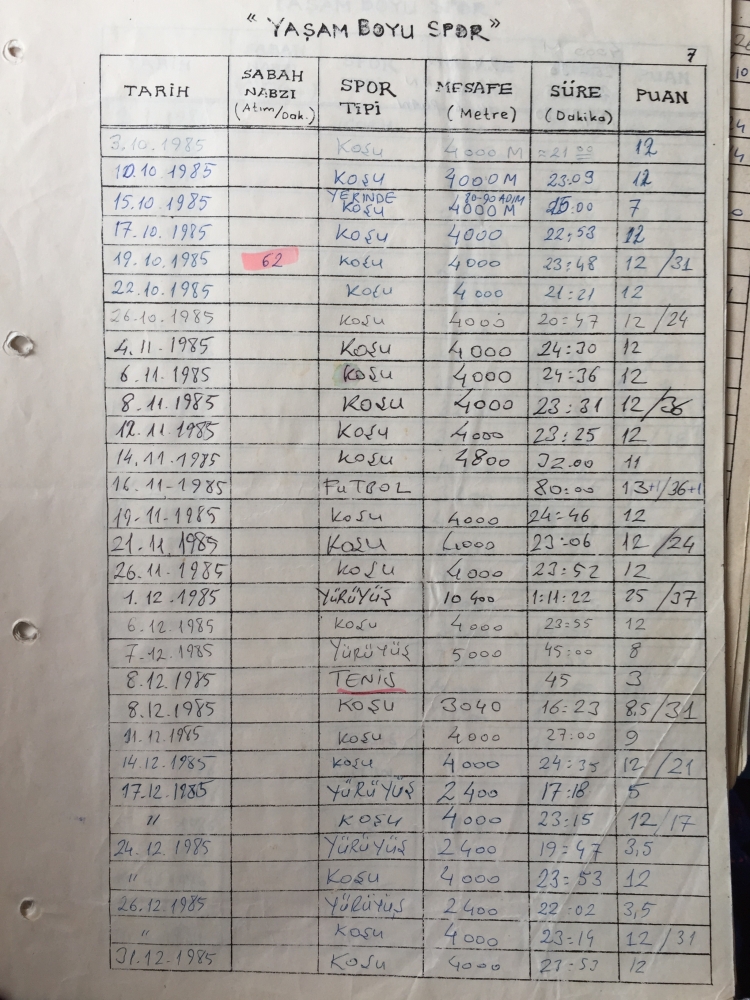 "YAŞAM BOYU SPOR"
7
TARİH SABAH NABZI (Atım/Dak.) SPOR TİPİ MESAFE (Metre) SÜRE (Dakika) PUAN
3.10.1985 KOŞU 4000 M ≈21 00 12
10.10.1985 KOŞU 4000 M 23:09 12
15.10.1985 YERİNDE KOŞU 80-90 ADIM 4000 M 25:00 7
17.10.1985 KOŞU 4000 22:53 12
19.10.1985 62 KOŞU 4000 23:48 12/31
22.10.1985 KOŞU 4000 21:21 12
26.10.1985 KOŞU 4000 20:47 12/24
4.11-1985 KOŞU 4000 24:30 12
6.11.1985 KOŞU 4000 24:36 12
8.11.1985 KOŞU 4000 23:31 12/36
12.11.1985 KOŞU 4000 23:25 12
14.11.1985 KOŞU 4800 32.00 11
16.11-1985 FUTBOL 80:00 13+1/36+1
19-11-1985 KOŞU 4000 24:46 12
21.11.1985 KOŞU 4000 23:06 12/24
26.11-1985 KOŞU 4000 23:52 12
1.12.1985 YÜRÜYÜŞ 10400 1:11:22 25/37
6.12.1985 KOŞU 4000 23:55 12
7.12.1985 YÜRÜYÜŞ 5000 45:00 8
8.12.1985 TENİS 45 3
8.12.1985 KOŞU 3040 16:23 8,5/31
11.12.1985 KOŞU 4000 27:00 9
14.12.1985 KOŞU 4000 24:35 12/21
17.12.1985 YÜRÜYÜŞ 2400 17:18 5
" KOŞU 4000 23:15 12/17
24.12.1985 YÜRÜYÜŞ 2400 19:47 3,5
" KOŞU 4000 23:53 12
26.12.1985 YÜRÜYÜŞ 2400 22:02 3,5
" KOŞU 4000 23:14 12/31
31.12.1985 KOŞU 4000 23:53 12